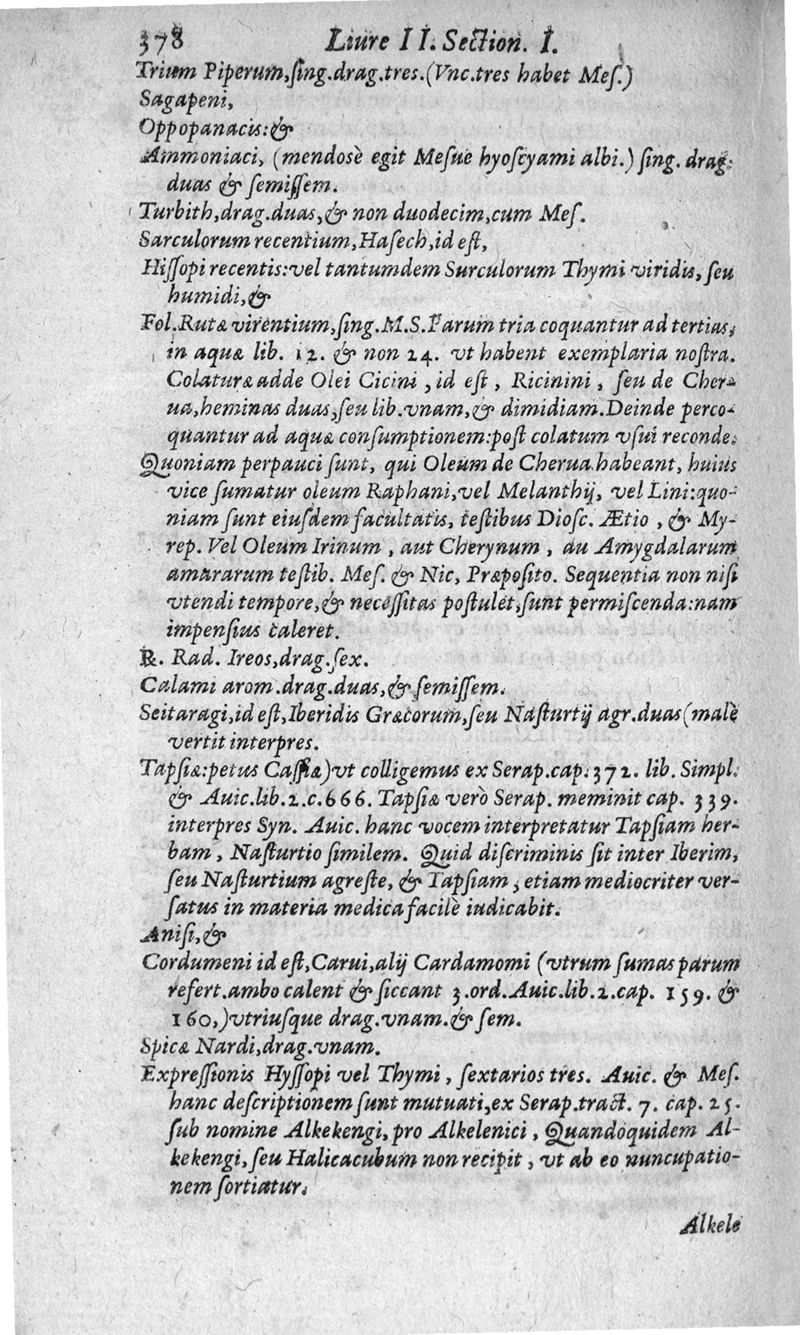 378 Liure II. Section. I.
Trium Piperum, ſing. drag. tres. (Vnc. tres habet Meſ.)
Sagapeni,
Oppopanacis: &
Ammoniaci, (mendosè egit Meſue hyoſcyami albi.) ſing. drag.
duas & ſemiſſem.
Turbith, drag. duas, & non duodecim, cum Meſ.
Sarculorum recentium, Haſech, id eſt,
Hiſſopi recentis: vel tantumdem Surculorum Thymi viridis, ſeu
humidi, &
Fol. Rutæ virentium, ſing. M.S. Parum tria coquantur ad tertias,
in aquæ lib. 12. & non 24. vt habent exemplaria noſtra.
Colaturæ adde Olei Cicini, id eſt, Ricinini, ſeu de Cher-
ua, heminas duas, ſeu lib. vnam, & dimidiam. Deinde perco-
quantur ad aquæ conſumptionem: poſt colatum vſui reconde.
Quoniam perpauci ſunt, qui Oleum de Cherua habeant, huius
vice ſumatur oleum Raphani, vel Melanthij, vel Lini: quo-
niam ſunt eiuſdem facultatis, teſtibus Dioſc. Ætio, & My-
rep. Vel Oleum Irinum, aut Cherynum, au Amygdalarum
amararum teſtib. Meſ. & Nic, Præpoſito. Sequentia non niſi
vtendi tempore, & neceſſitas poſtulet, ſunt permiſcenda: nam
impenſius caleret.
℞. Rad. Ireos, drag. ſex.
Calami arom. drag. duas, & ſemiſſem.
Seitaragi, id eſt, Iberidis Græcorum, ſeu Naſturtij agr. duas (malè
vertit interpres.
Tapſiæ: petus Caſſiæ) vt colligemus ex Serap. cap. 372. lib. Simpl.
& Auic. lib. 2. c. 666. Tapſiæ verò Serap. meminit cap. 339.
interpres Syn. Auic. hanc vocem interpretatur Tapſiam her-
bam, Naſturtio ſimilem. Quid diſcriminis ſit inter Iberim,
ſeu Naſturtium agreſte, & Tapſiam, etiam mediocriter ver-
ſatus in materia medica facilè iudicabit.
Aniſi, &
Cordumeni id eſt, Carui, alij Cardamomi (vtrum ſumas parum
refert. ambo calent & ſiccant 3. ord. Auic. lib. 2. cap. 159. &
160,) vtriuſque drag. vnam. & ſem.
Spicæ Nardi, drag. vnam.
Expreſſionis Hyſſopi vel Thymi, ſextarios tres. Auic. & Meſ.
hanc deſcriptionem ſunt mutuati, ex Serap. tract. 7. cap. 25.
ſub nomine Alkekengi, pro Alkelenici, Quandoquidem Al-
kekengi, ſeu Halicacubum non recipit, vt ab eo nuncupatio-
nem ſortiatur.
Alkele